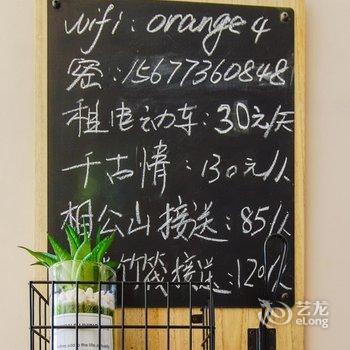 wifi : orange 4
密:15677360848
租电动车:30元/天
千古情:130元/人
相公山接送:85/人
竹筏接送:120/人
艺龙
eLong